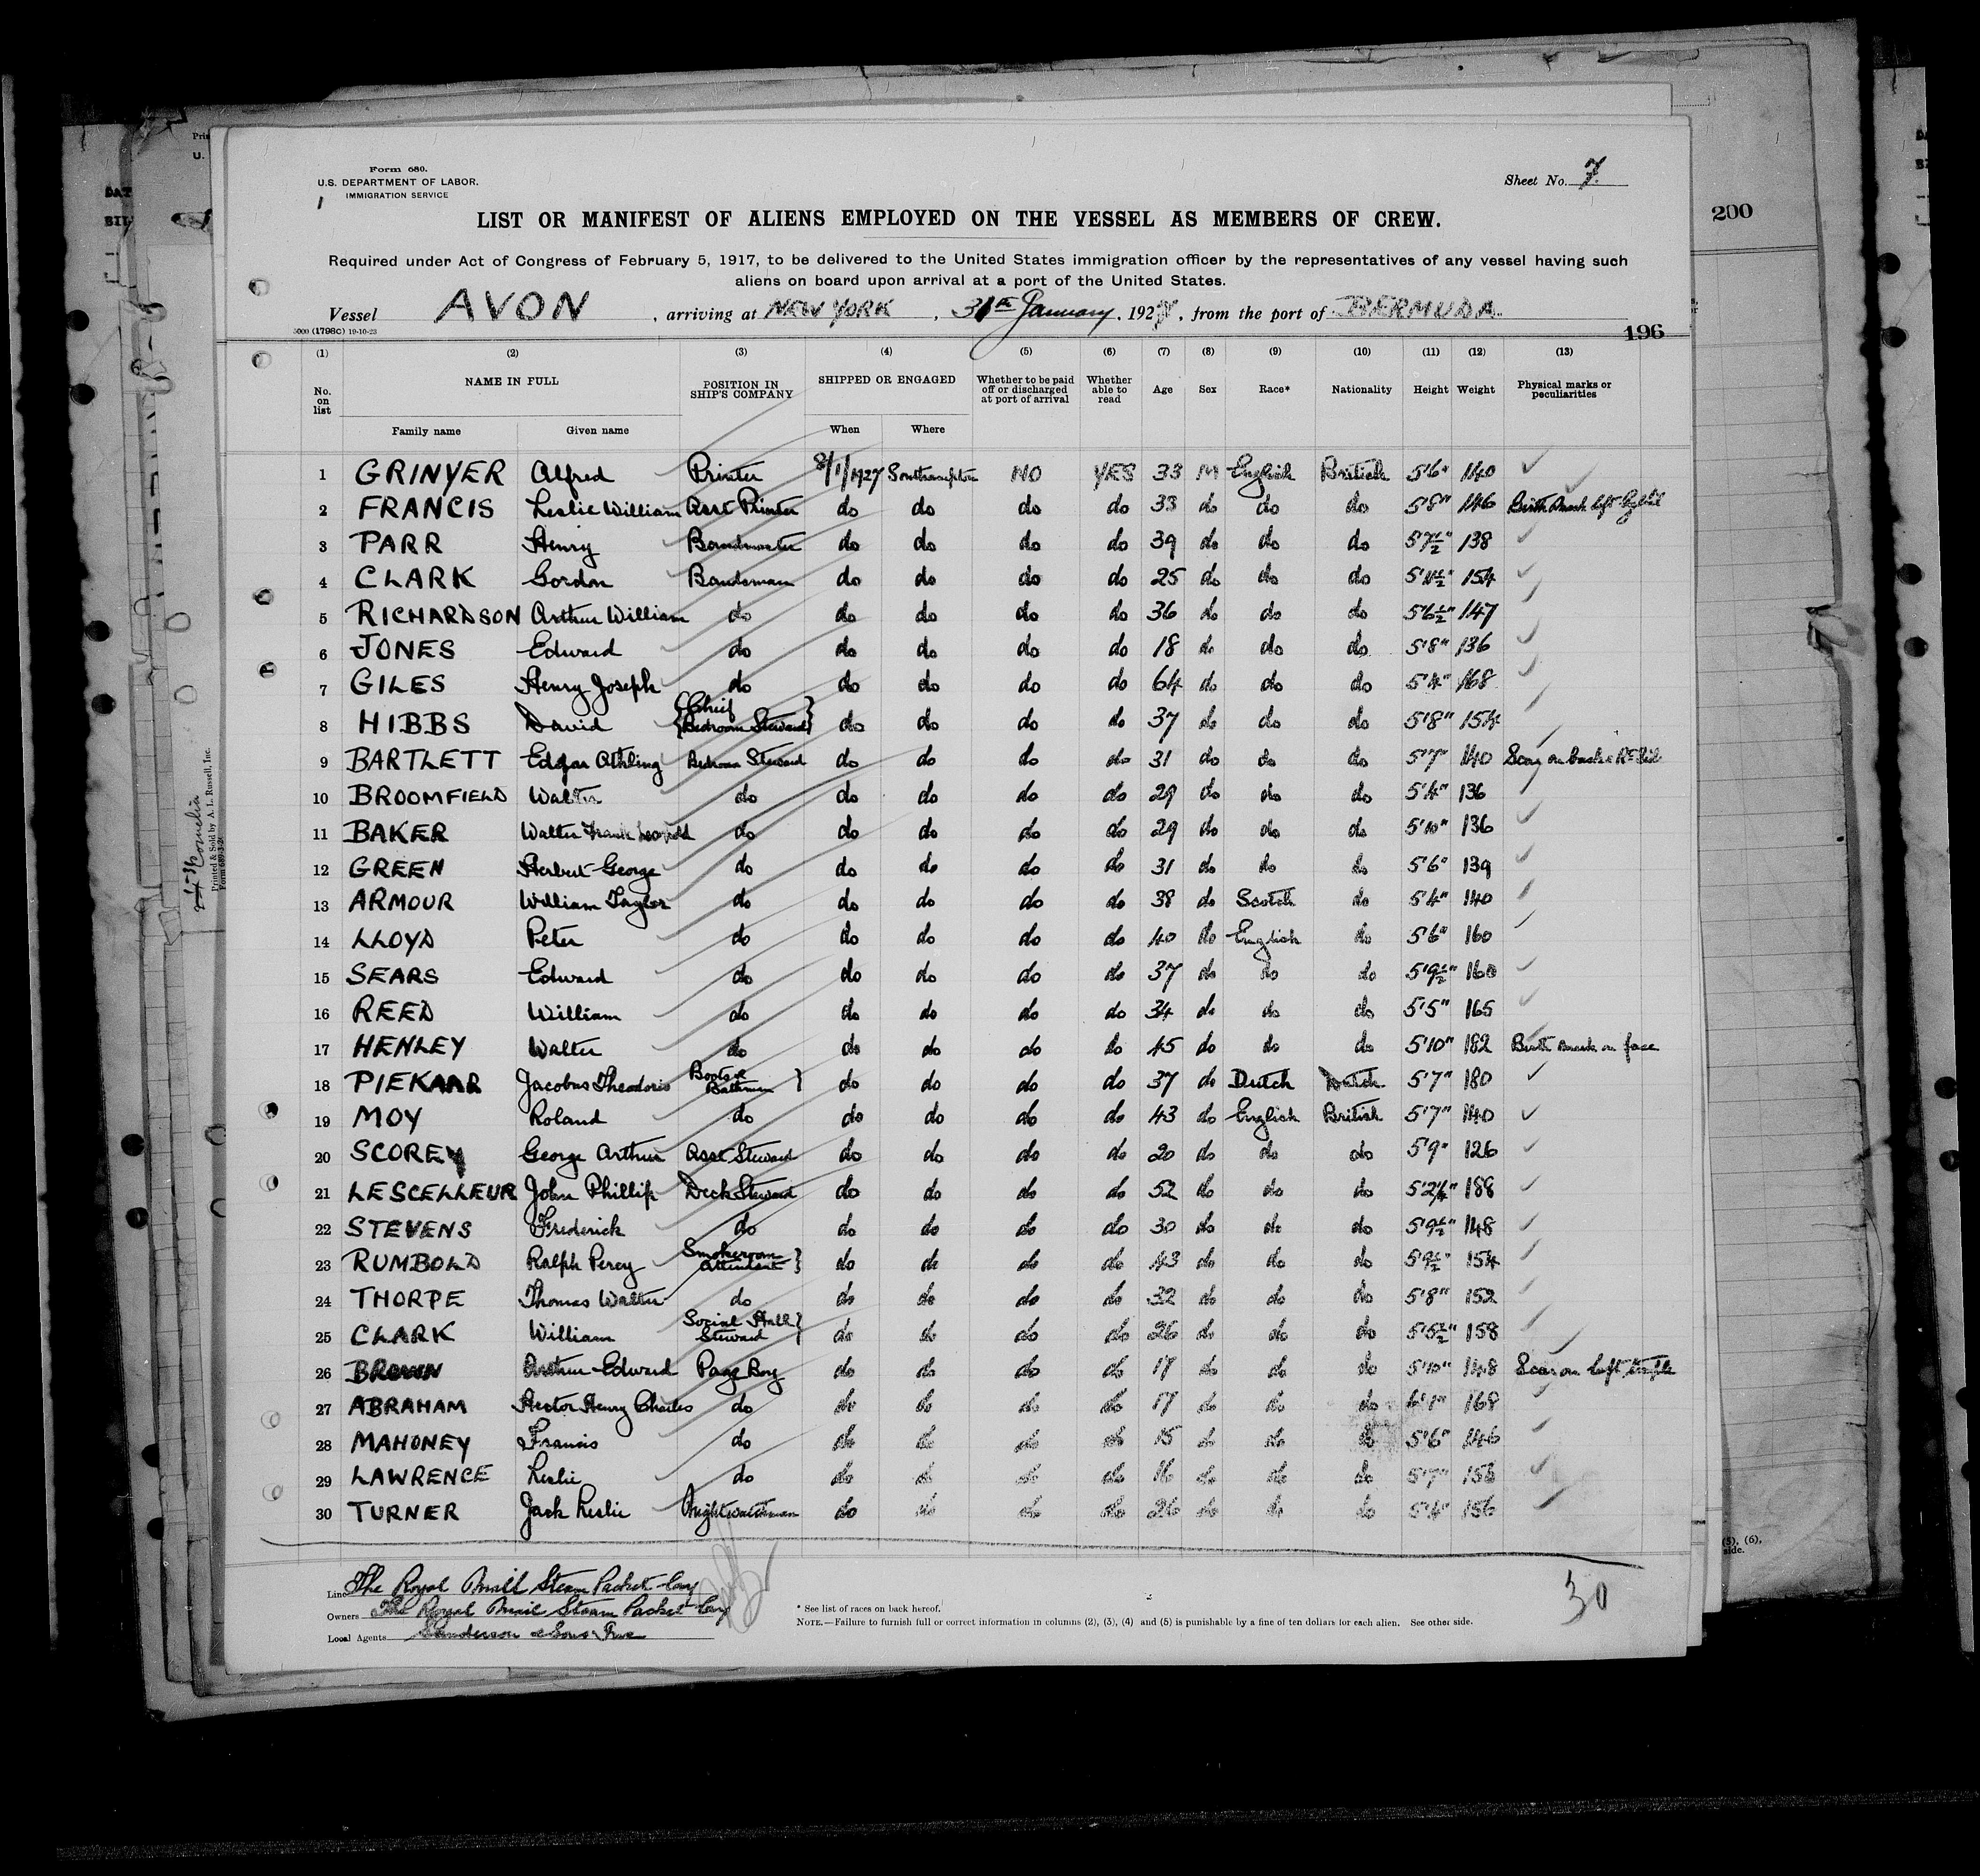 Form 680.
U.S. DEPARTMENT OF LABOR.
IMMIGRATION SERVICE
Sheet No. 7.
200
LIST OR MANIFEST OF ALIENS EMPLOYED ON THE VESSEL AS MEMBERS OF CREW.
Required under Act of Congress of February 5, 1917, to be delivered to the United States immigration officer by the representatives of any vessel having such
aliens on board upon arrival at a port of the United States.
Vessel AVON, arriving at NEW YORK, 31st January, 192, from the port of BERMUDA.
5000 (1798c) 19-10-23
196
(1) (2) (3) (4) (5) (6) (7) (8) (9) (10) (11) (12) (13)
No. on list NAME IN FULL POSITION IN SHIP'S COMPANY SHIPPED OR ENGAGED Whether to be paid off or discharged at port of arrival Whether able to read Age Sex Race* Nationality Height Weight Physical marks or peculiarities
Family name Given name When Where
1 GRINYER Alfred Printer 8/1/1927 Southampton NO YES 33 M English British 5'6" 140
2 FRANCIS Leslie William Asst Printer do do do do 33 do do do 5'8" 146 Birth Mark left
3 PARR Henry Bandmaster do do do do 39 do do do 5'7½" 138
4 CLARK Gordon Bandsman do do do do 25 do do do 5'11½" 154
5 RICHARDSON Arthur William do do do do do 36 do do do 5'6½" 147
6 JONES Edward do do do do do 18 do do do 5'8" 136
7 GILES Henry Joseph do do do do do 64 do do do 5'4" 168
8 HIBBS David {Chief Bedroom Steward} do do do do 37 do do do 5'8" 154
9 BARTLETT Edgar Athling Bedroom Steward do do do do 31 do do do 5'7" 140 Scar on back
10 BROOMFIELD Walter do do do do do 29 do do do 5'4" 136
11 BAKER Walter Frank Leopold do do do do do 29 do do do 5'10" 136
12 GREEN Herbert George do do do do do 31 do do do 5'6" 139
13 ARMOUR William Taylor do do do do do 38 do Scotch do 5'4" 140
14 LLOYD Peter do do do do do 40 do English do 5'6" 160
15 SEARS Edward do do do do do 37 do do do 5'9½" 160
16 REED William do do do do do 34 do do do 5'5" 165
17 HENLEY Walter do do do do do 45 do do do 5'10" 182 Birth mark on face
18 PIEKAAR Jacobus Theodoris Boots & Bathman } do do do do 37 do Dutch Dutch 5'7" 180
19 MOY Roland do do do do do 43 do English British 5'7" 140
20 SCOREY George Arthur Asst Steward do do do do 20 do do do 5'9" 126
21 LESCELLEUR John Phillip Deck Steward do do do do 52 do do do 5'2¼" 188
22 STEVENS Frederick do do do do do 30 do do do 5'9½" 148
23 RUMBOLD Ralph Percy Smokeroom Attendant } do do do do 43 do do do 5'9½" 154
24 THORPE Thomas Walter do do do do do 32 do do do 5'8" 152
25 CLARK William Social Hall Steward } do do do do 26 do do do 5'5½" 158
26 BROWN Arthur Edward Page Boy do do do do 17 do do do 5'10" 148 Scar on left temple
27 ABRAHAM Hector Henry Charles do do do do do 17 do do do 6'1" 168
28 MAHONEY Francis do do do do do 15 do do do 5'6" 146
29 LAWRENCE Leslie do do do do do 16 do do do 5'7" 158
30 TURNER Jack Leslie Nightwatchman do do do do 26 do do do 5'4" 156
Line The Royal Mail Steam Packet Coy
Owners The Royal Mail Steam Packet Coy
Local Agents Sanderson & Sons
* See list of races on back hereof.
NOTE.—Failure to furnish full or correct information in columns (2), (3), (4) and (5) is punishable by a fine of ten dollars for each alien. See other side.
30
Printed & Sold by A. L. Russell, Inc.
(5), (6),
side.